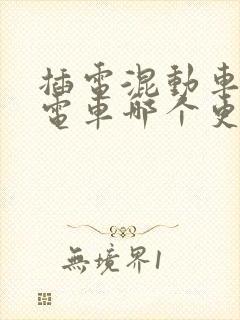 插電混動車
電車哪个更
無境界1